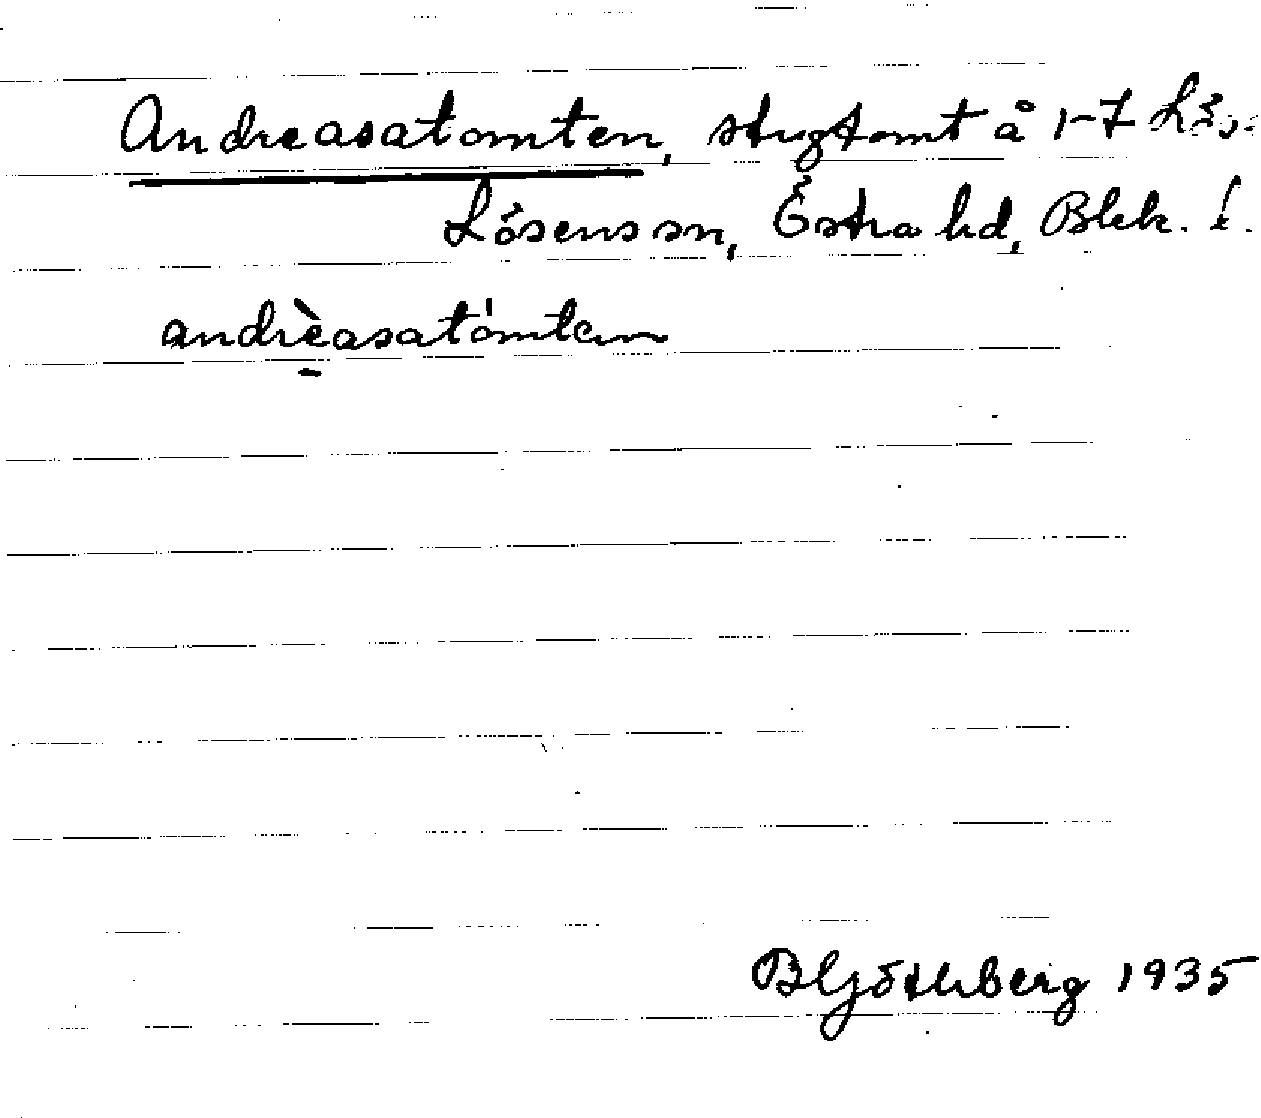 Andreasatomten, stugtomt å 1-7
Lösens sn, Östra hd, Blek. l.
andrèasatómten
B Ejöthberg 1935